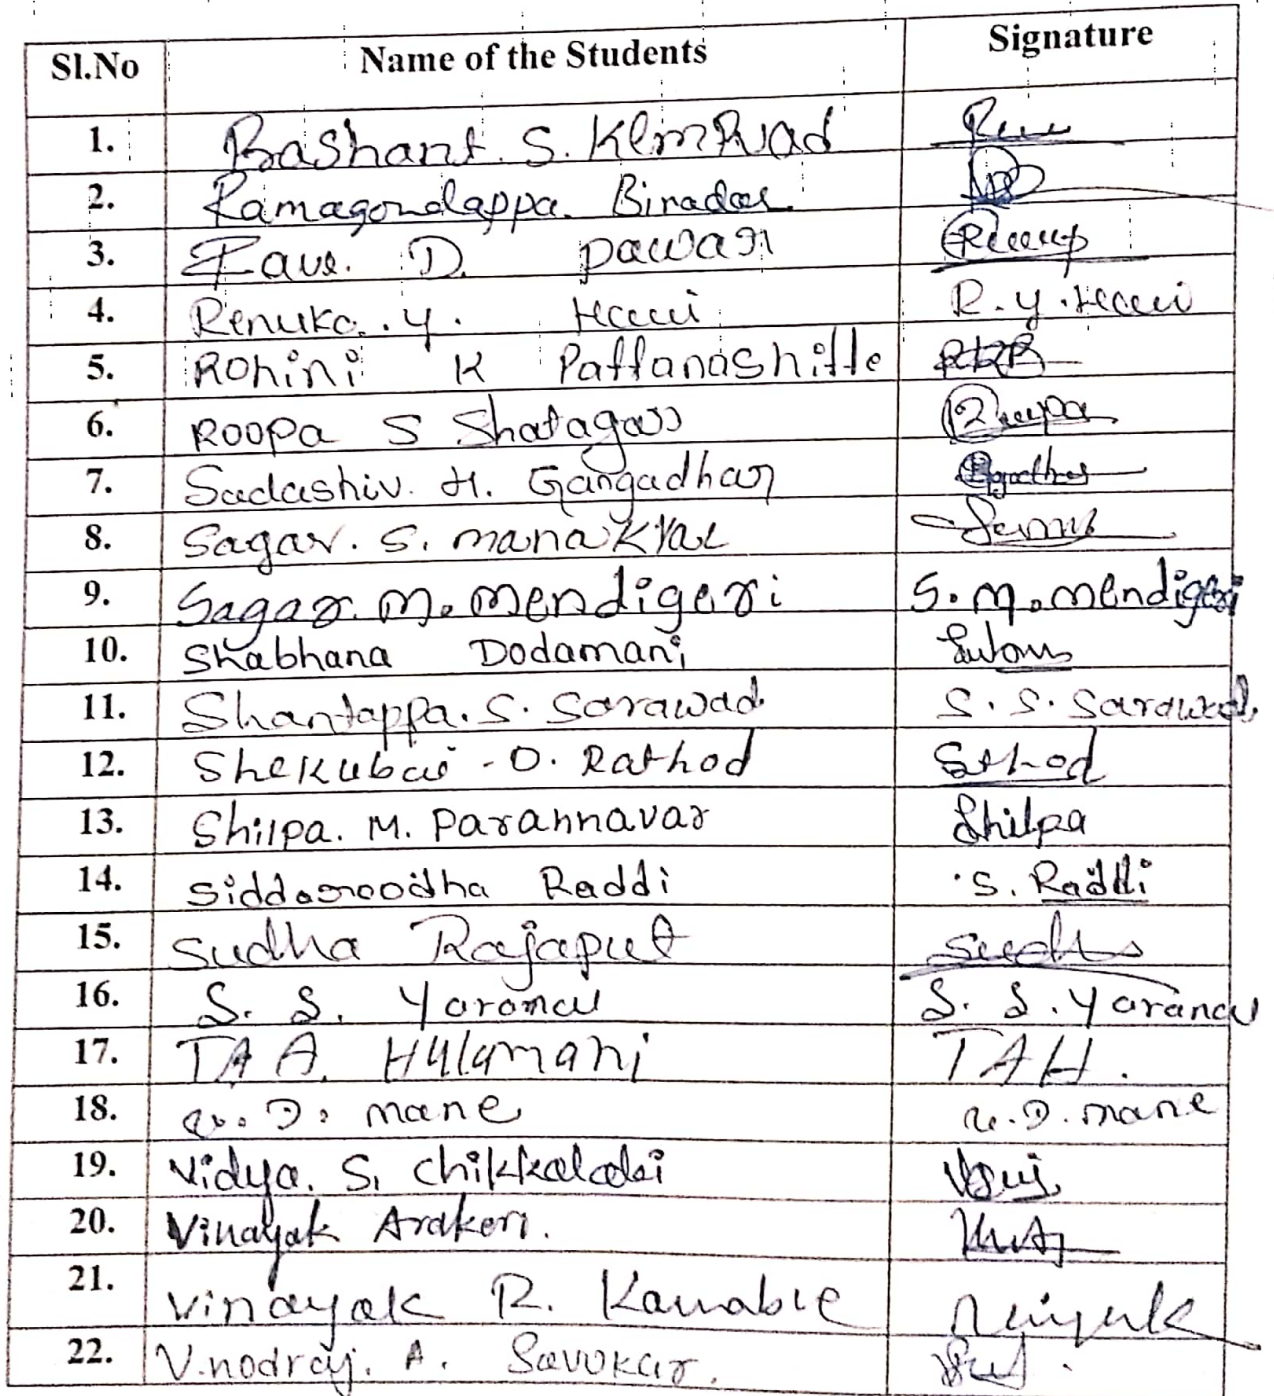 Sl.No Name of the Students Signature
1. Bashant. S.
2. Ramagondappa. Biradar
3. D. Pawar
4. Renuka. Y. R. Y.
5. Rohini K Pattanashitte RKB
6. Roopa S Shatagar Roopa
7. Sadashiv. H. Gangadhar
8. Sagar. S. manakyal
9. Sagar. M. Mendigeri S. M. Mendigeri
10. Shabhana Dodamani
11. Shantappa. S. Sarawad S. S. Sarawad
12. Shekubai - D. Rathod
13. Shilpa. M. Parannavar Shilpa
14. Siddaroodha Raddi S. Raddi
15. Sudha Rajaput Sudha
16. S. S. Yaranal S. S. Yaranal
17. T A A. Hulamani T A H.
18. D. mane D. mane
19. Vidya. S. Chikkalaki
20. Vinayak Arakeri.
21. Vinayak R.
22. V.nodraj. A. Savukar.